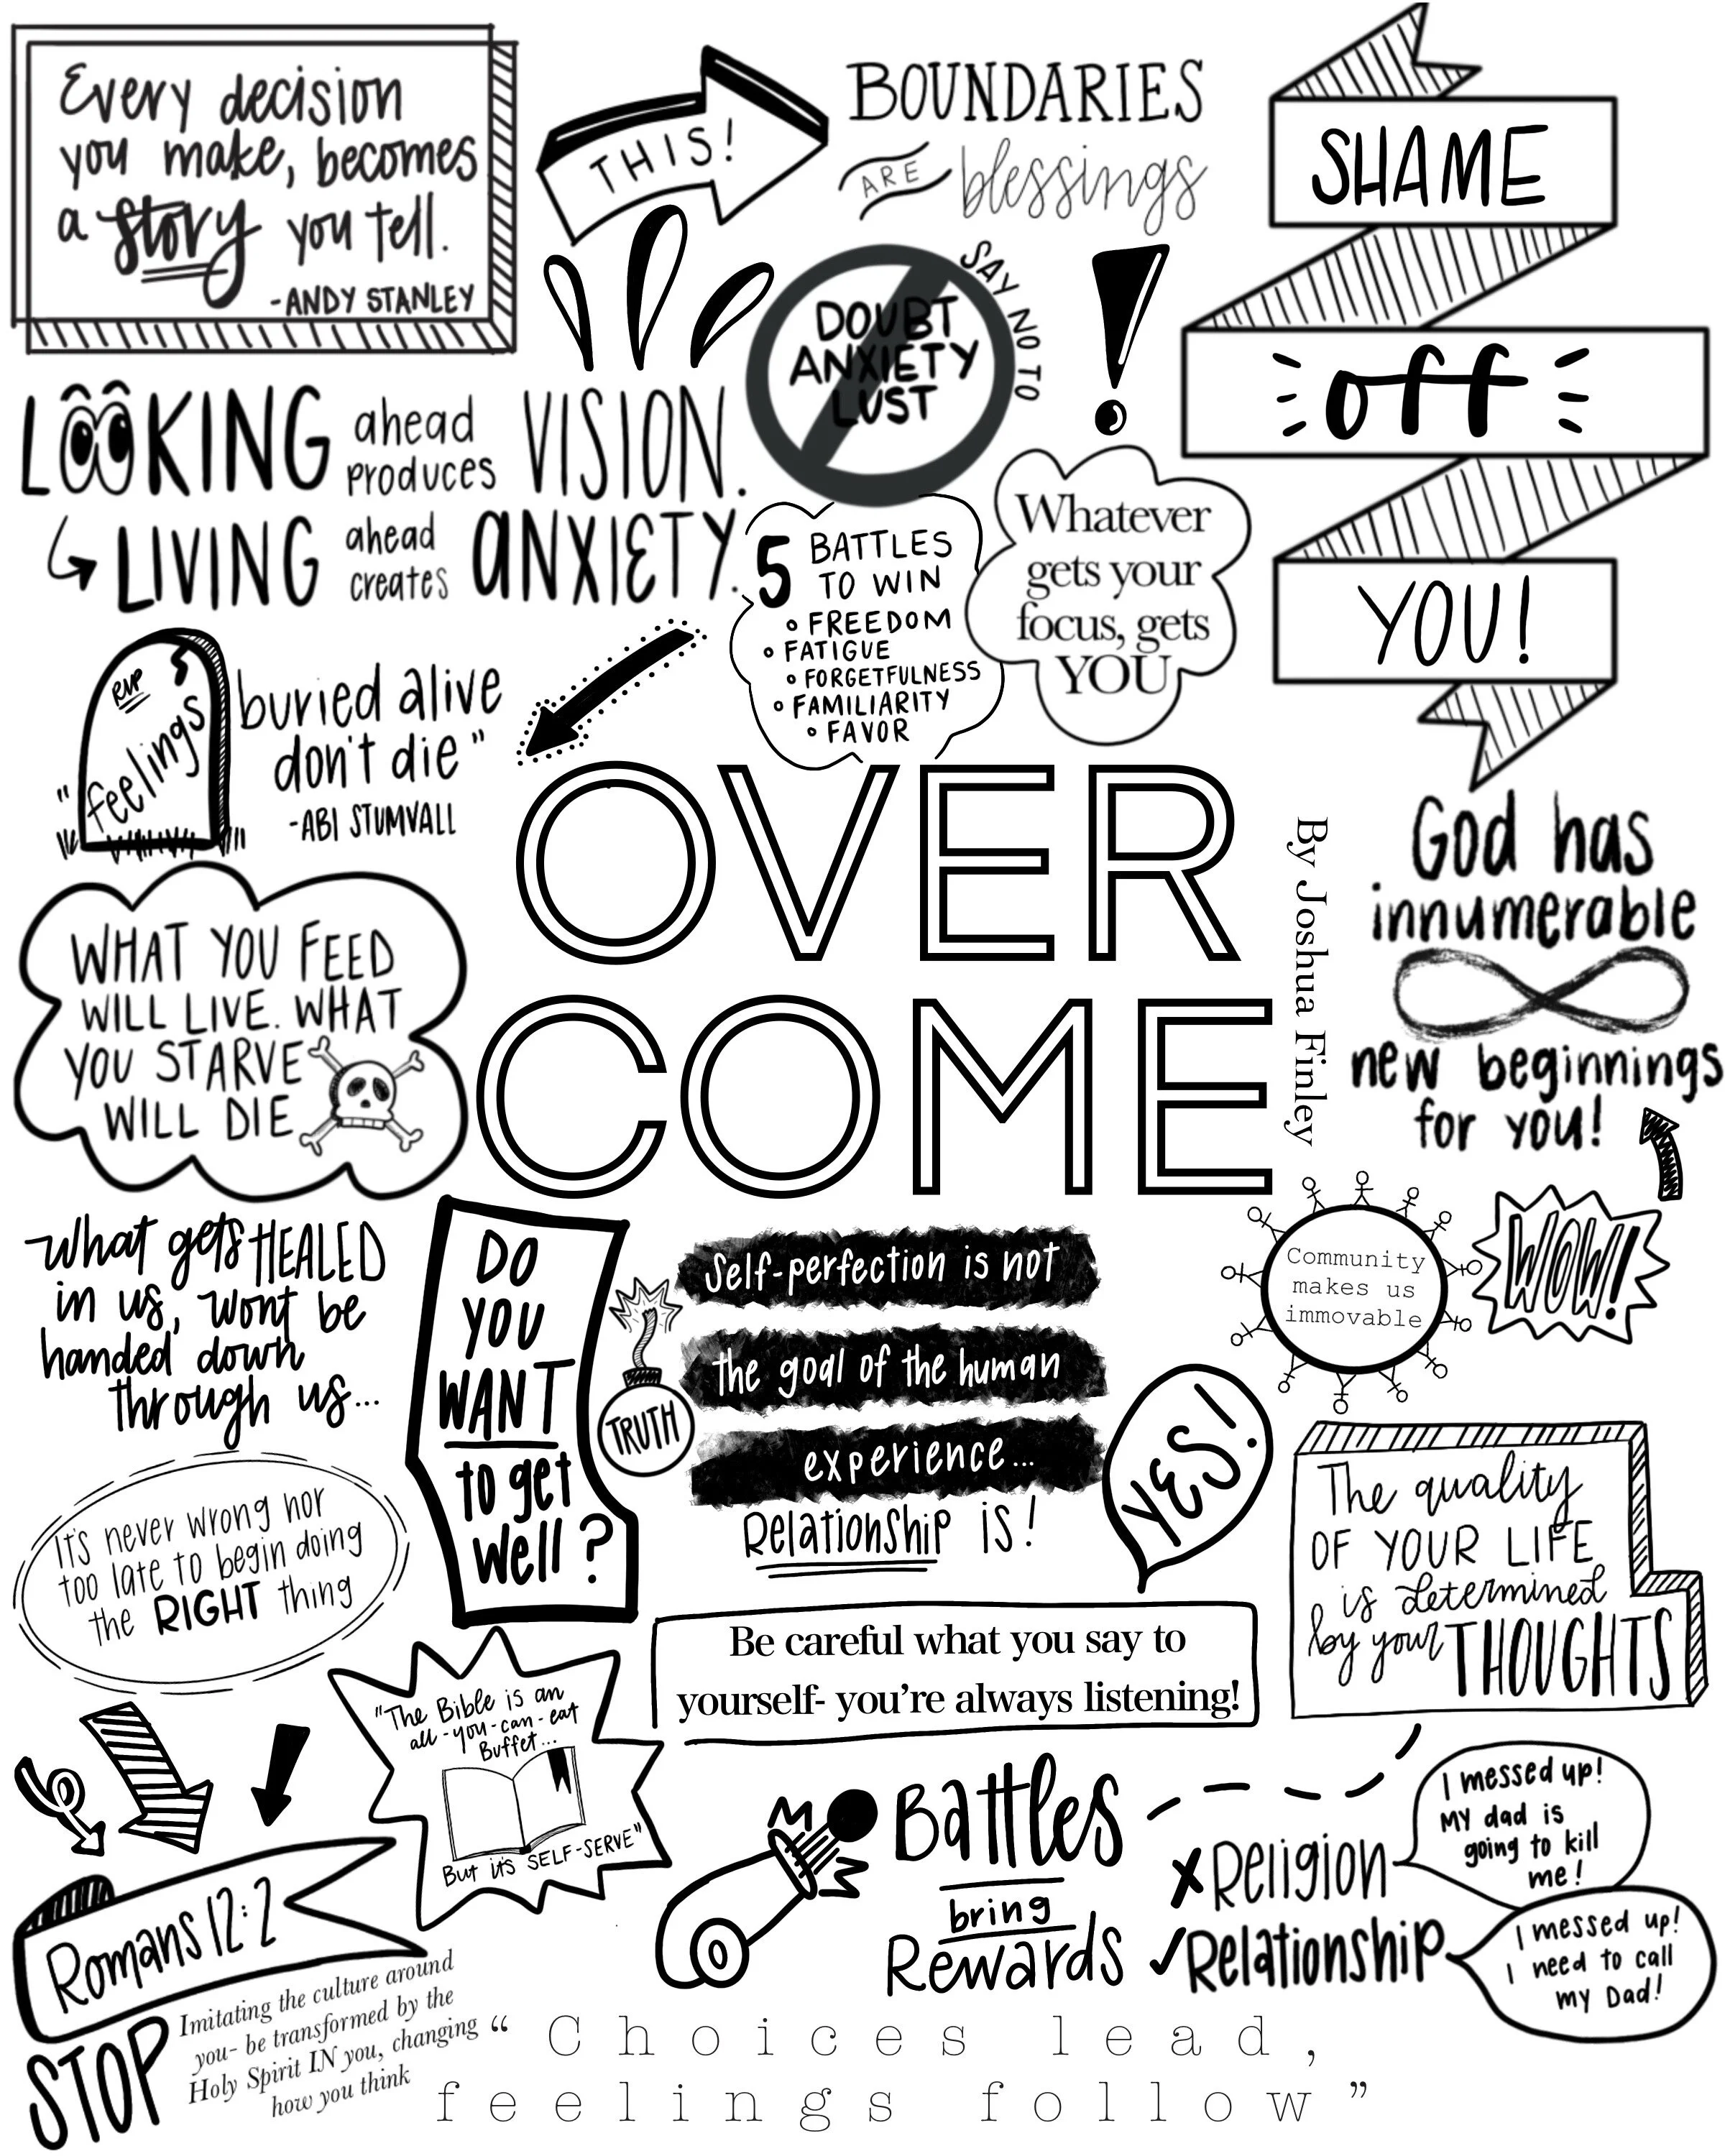 Every decision
you make, becomes
a story you tell.
-ANDY STANLEY
THIS!
BOUNDARIES
ARE blessings
SHAME
off
YOU!
SAY NO TO
DOUBT
ANXIETY
LUST
LOOKING ahead produces VISION.
LIVING ahead creates ANXIETY.
5 BATTLES
TO WIN
FREEDOM
FATIGUE
FORGETFULNESS
FAMILIARITY
FAVOR
Whatever
gets your
focus, gets
YOU
RVP
"feelings
buried alive
don't die"
-ABI STUMVALL
OVER
COME
By Joshua Finley
God has
innumerable
new beginnings
for you!
WHAT YOU FEED
WILL LIVE. WHAT
YOU STARVE
WILL DIE
What gets HEALED
in us, wont be
handed down
through us...
DO
YOU
WANT
to get
well?
TRUTH
Self-perfection is not
the goal of the human
experience...
Relationship is!
Community
makes us
immovable
WOW!
YES!
It's never wrong nor
too late to begin doing
the RIGHT thing
The quality
OF YOUR LIFE
is determined
by your THOUGHTS
Be careful what you say to
yourself- you're always listening!
"The Bible is an
all-you-can-eat
Buffet...
But it's SELF-SERVE"
Battles
bring
Rewards
Religion
I messed up!
MY dad is
going to kill
me!
Relationship
I messed up!
I need to call
my Dad!
Romans 12:2
STOP
Imitating the culture around
you- be transformed by the
Holy Spirit IN you, changing
how you think
"Choices lead,
feelings follow"